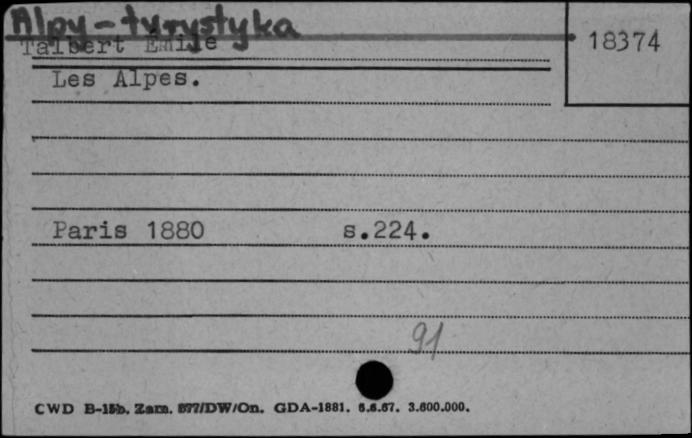 Alpy-turystyka
Talbert Emile
18374
Les Alpes.
Paris 1880 s.224.
91
CWD B-15b. Zam. 877/DW/On. GDA-1881. 6.6.67. 3.600.000.